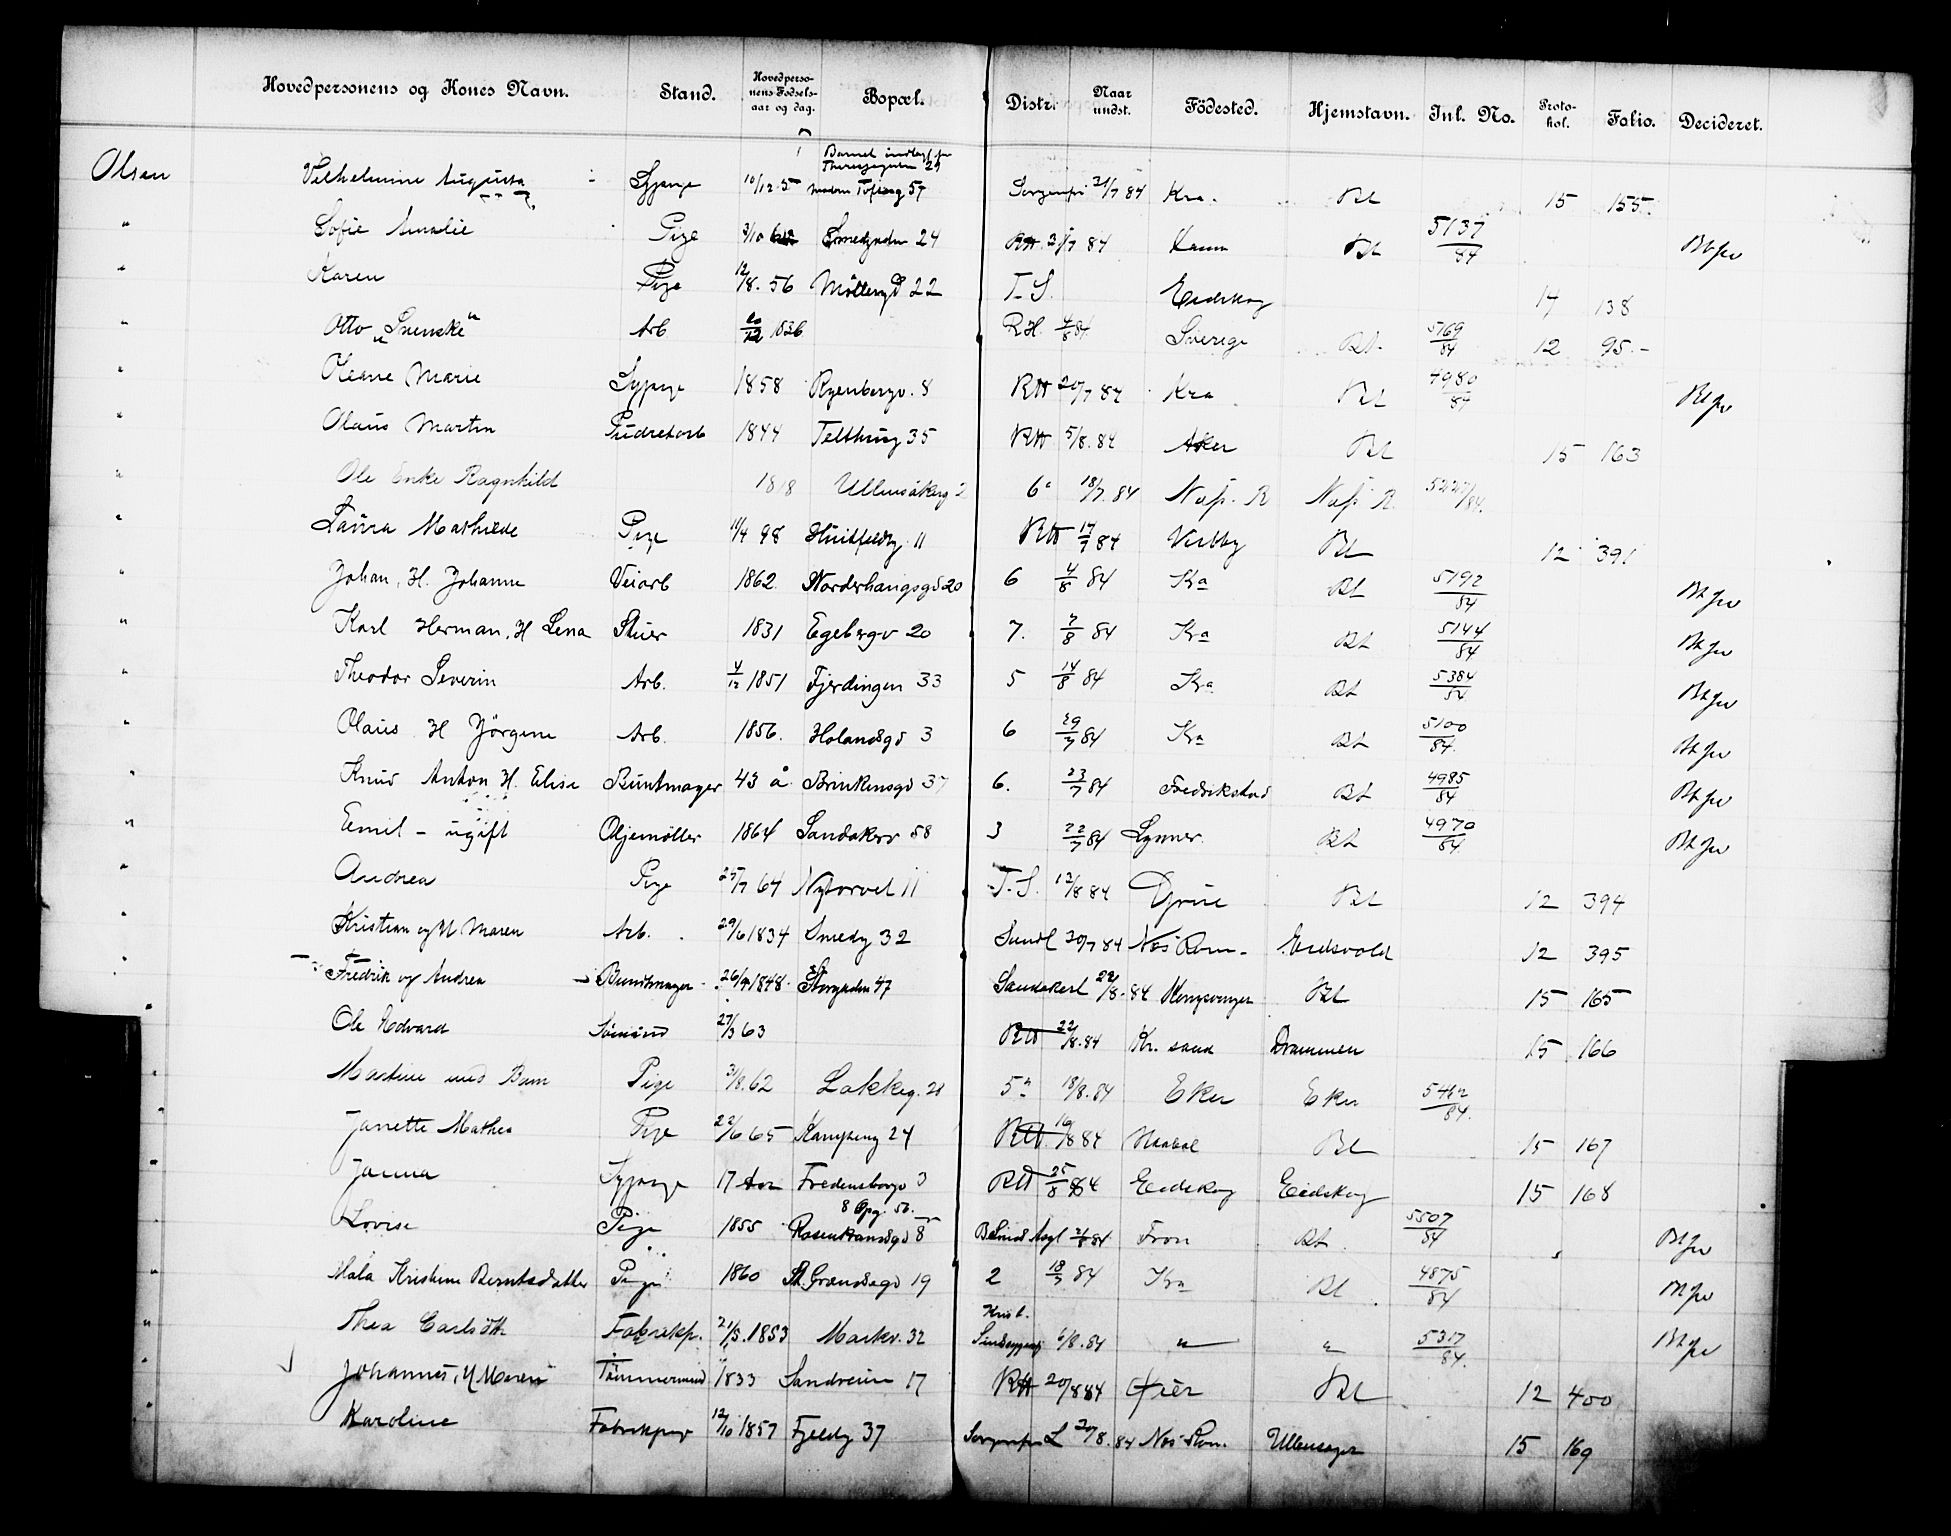 Hovedpersonens og Kones Navn. Stand. Hovedpersonens Fødselsaar og dag. Bopæl. Distr. Naar undst. Födested. Hjemstavn. Inl. No. Protokol. Folio. Decideret.
Olsen Vilhelmine Augusta Sypige 10/12 5 57 Sorgenfri 21/7 84 Kra. Bt 15 155.
" Sofie Amalie Pige 3/10 Smedgaden 24 RH 21/7 84 Bt 5137/84 Bt jw
" Karen Pige 12/8. 56 Möllergd 22 T. S. Eidskog 14 138
" Otto „Svenske" Arb 1826 R.H. 4/8 84 Sverige Bt. 5169/84 12 95.-
" Oleane Marie Sypige 1858 Ryenbergv. 8 RH 20/7 84 Kra Bt 4980/84 Bt jw
" Olaus Martin Pudretarb 1844 Telthusg 35 RH 5/8. 84 Aker Bt 15 163
" Ole Enke Ragnhild 1818 Ullensakerg 2 6a 18/7. 84 Næs. R Næs R. 5227/84.
" Laura Mathilde Pige 10/4 98 Huitfeldtg. 11 RH 17/7 84 Vestby Bt 12 391
" Johan, H. Johanne Veiarb 1862. Norderhaugsgd 20 6 4/8 84 Kra Bt 5192/84 Bt jw
" Karl Herman, H Lena Stuer 1831 Egebergv 20 7. 7/8 84 Kra Bt 5144/84 Bt jw
" Theodor Severin Arb. 4/12 1851 Fjerdingen 33 5 14/8 84 Kra Bt 5384/84 Bt jw
" Olaus H Jörgine Arb. 1856. Holandsgd 3 6 29/7 84 Kra Bt 5100/84. Bt jw
" Knud Anton H. Elise Buntmager 43 å Brinkensgd 37 6. 23/7 84 Fredrikstad Bt 4985/84 Bt jw
" Emil – ugift Oljemöller 1864 Sandakerv 58 3 22/7 84 Lyner Bt 4970/84. Bt jw
" Andrea Pige 25/7 64 Nytorvet 11 T. S. 12/8 84 Grue Bt 12 394
" Kristian og H Maren Arb. 29/6 1834 Smedg 32 Sundl 20/7 84 Næs Rom. Eidsvold 12 395
" Fredrik og Andrea Bundtmager 26/9 1848. Storgaden 47 Sandakerl 22/8. 84 Kongsvinger Bt 15 165
" Ole Edvard Sömand 27/3 63 RH 22/8. 84 Kr. sand Drammen 15 166
" Martine med Barn Pige 3/8. 62 Lakkeg. 21 5a 18/8. 84 Eker Eker 5462/84.
" Janette Mathea Pige 22/6 65 Kampeng 24 RH. 16/8 84 Bt 15 167
" Janna Sypige 17 Aar Fredensborgv 3 RH 25/8 84 Eidskog Eidskog 15 168
8 Opg. 56.
" Lovise Pige 1855 Rosenkransdgd 8 84 Fron Bt 5507/84 Bt jw
" Mala Kristine Berntsdatter Pige 1860 St. Grændsegd 19 2 18/7 84 Kra Bt 4875/84 Bt jw
" Thea Carlsdtt Fabrikp. 21/5. 1853 Markv. 32 6/8. 84 " " 5317/84. Bt jw
Johannes, H Maren Tömmermand 1833 Sandveien 17 RH 20/8 84 Bt 12 400
Karoline Fabrikpige 12/10 1857 Fjeldg 37 Sorgenfri L 20/8. 84 Næs Rom. Ullensager 15 169